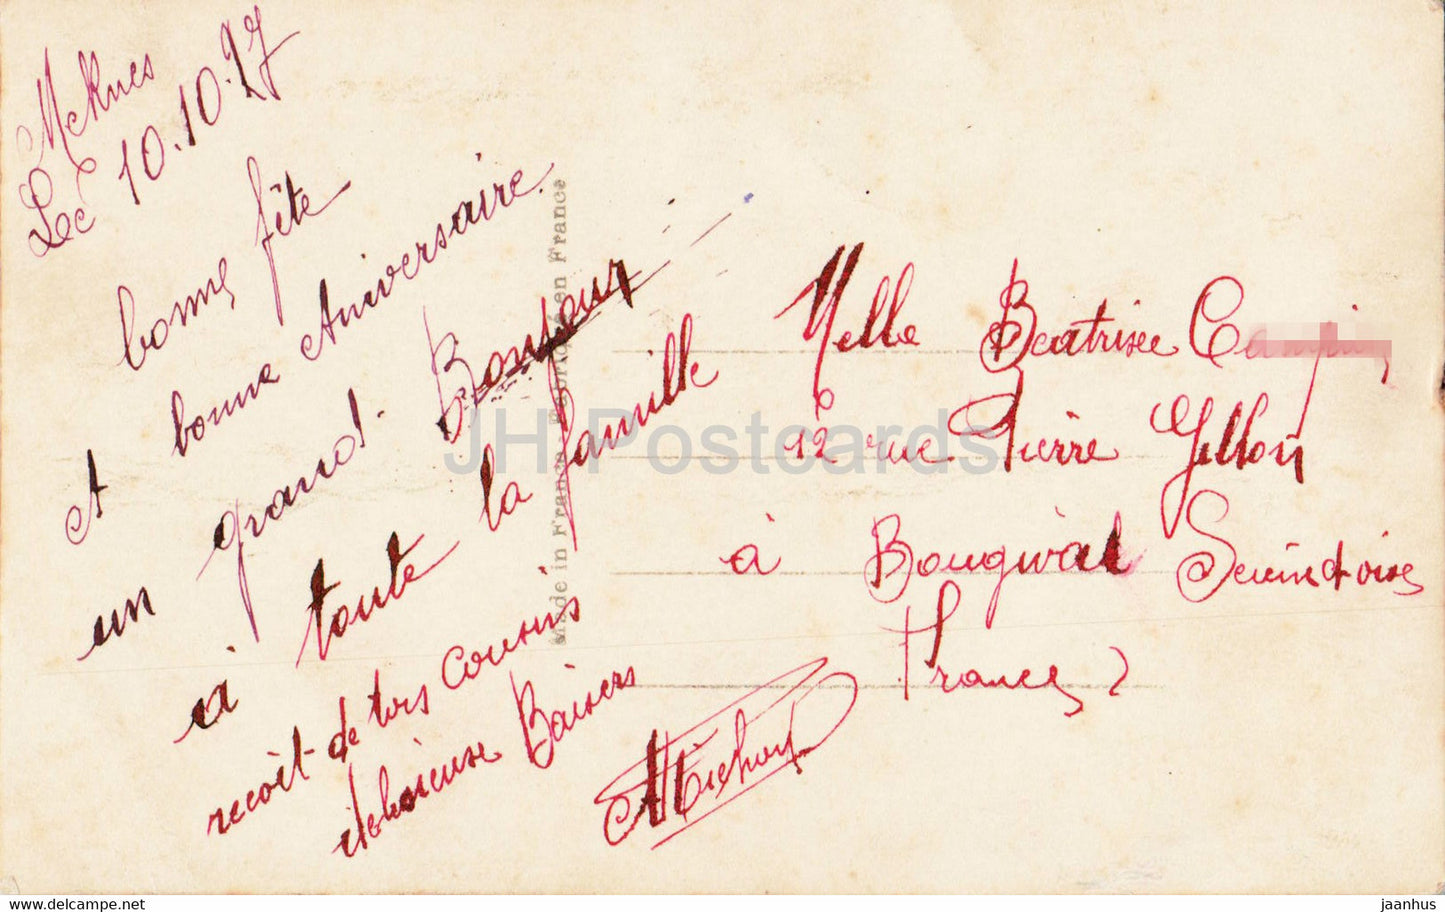 Meknes
Le 10.10.27
bonne fête
A bonne Aniversaire.
un grand. Bonjour
a toute la famille
recoit de tois cousins
delicieuse Baisers
Melle Beatrise
12 rue Pierre
à Bougival Seine et oise
France
Made in France en France
JH Postcards
www.delcampe.net
jaanhus